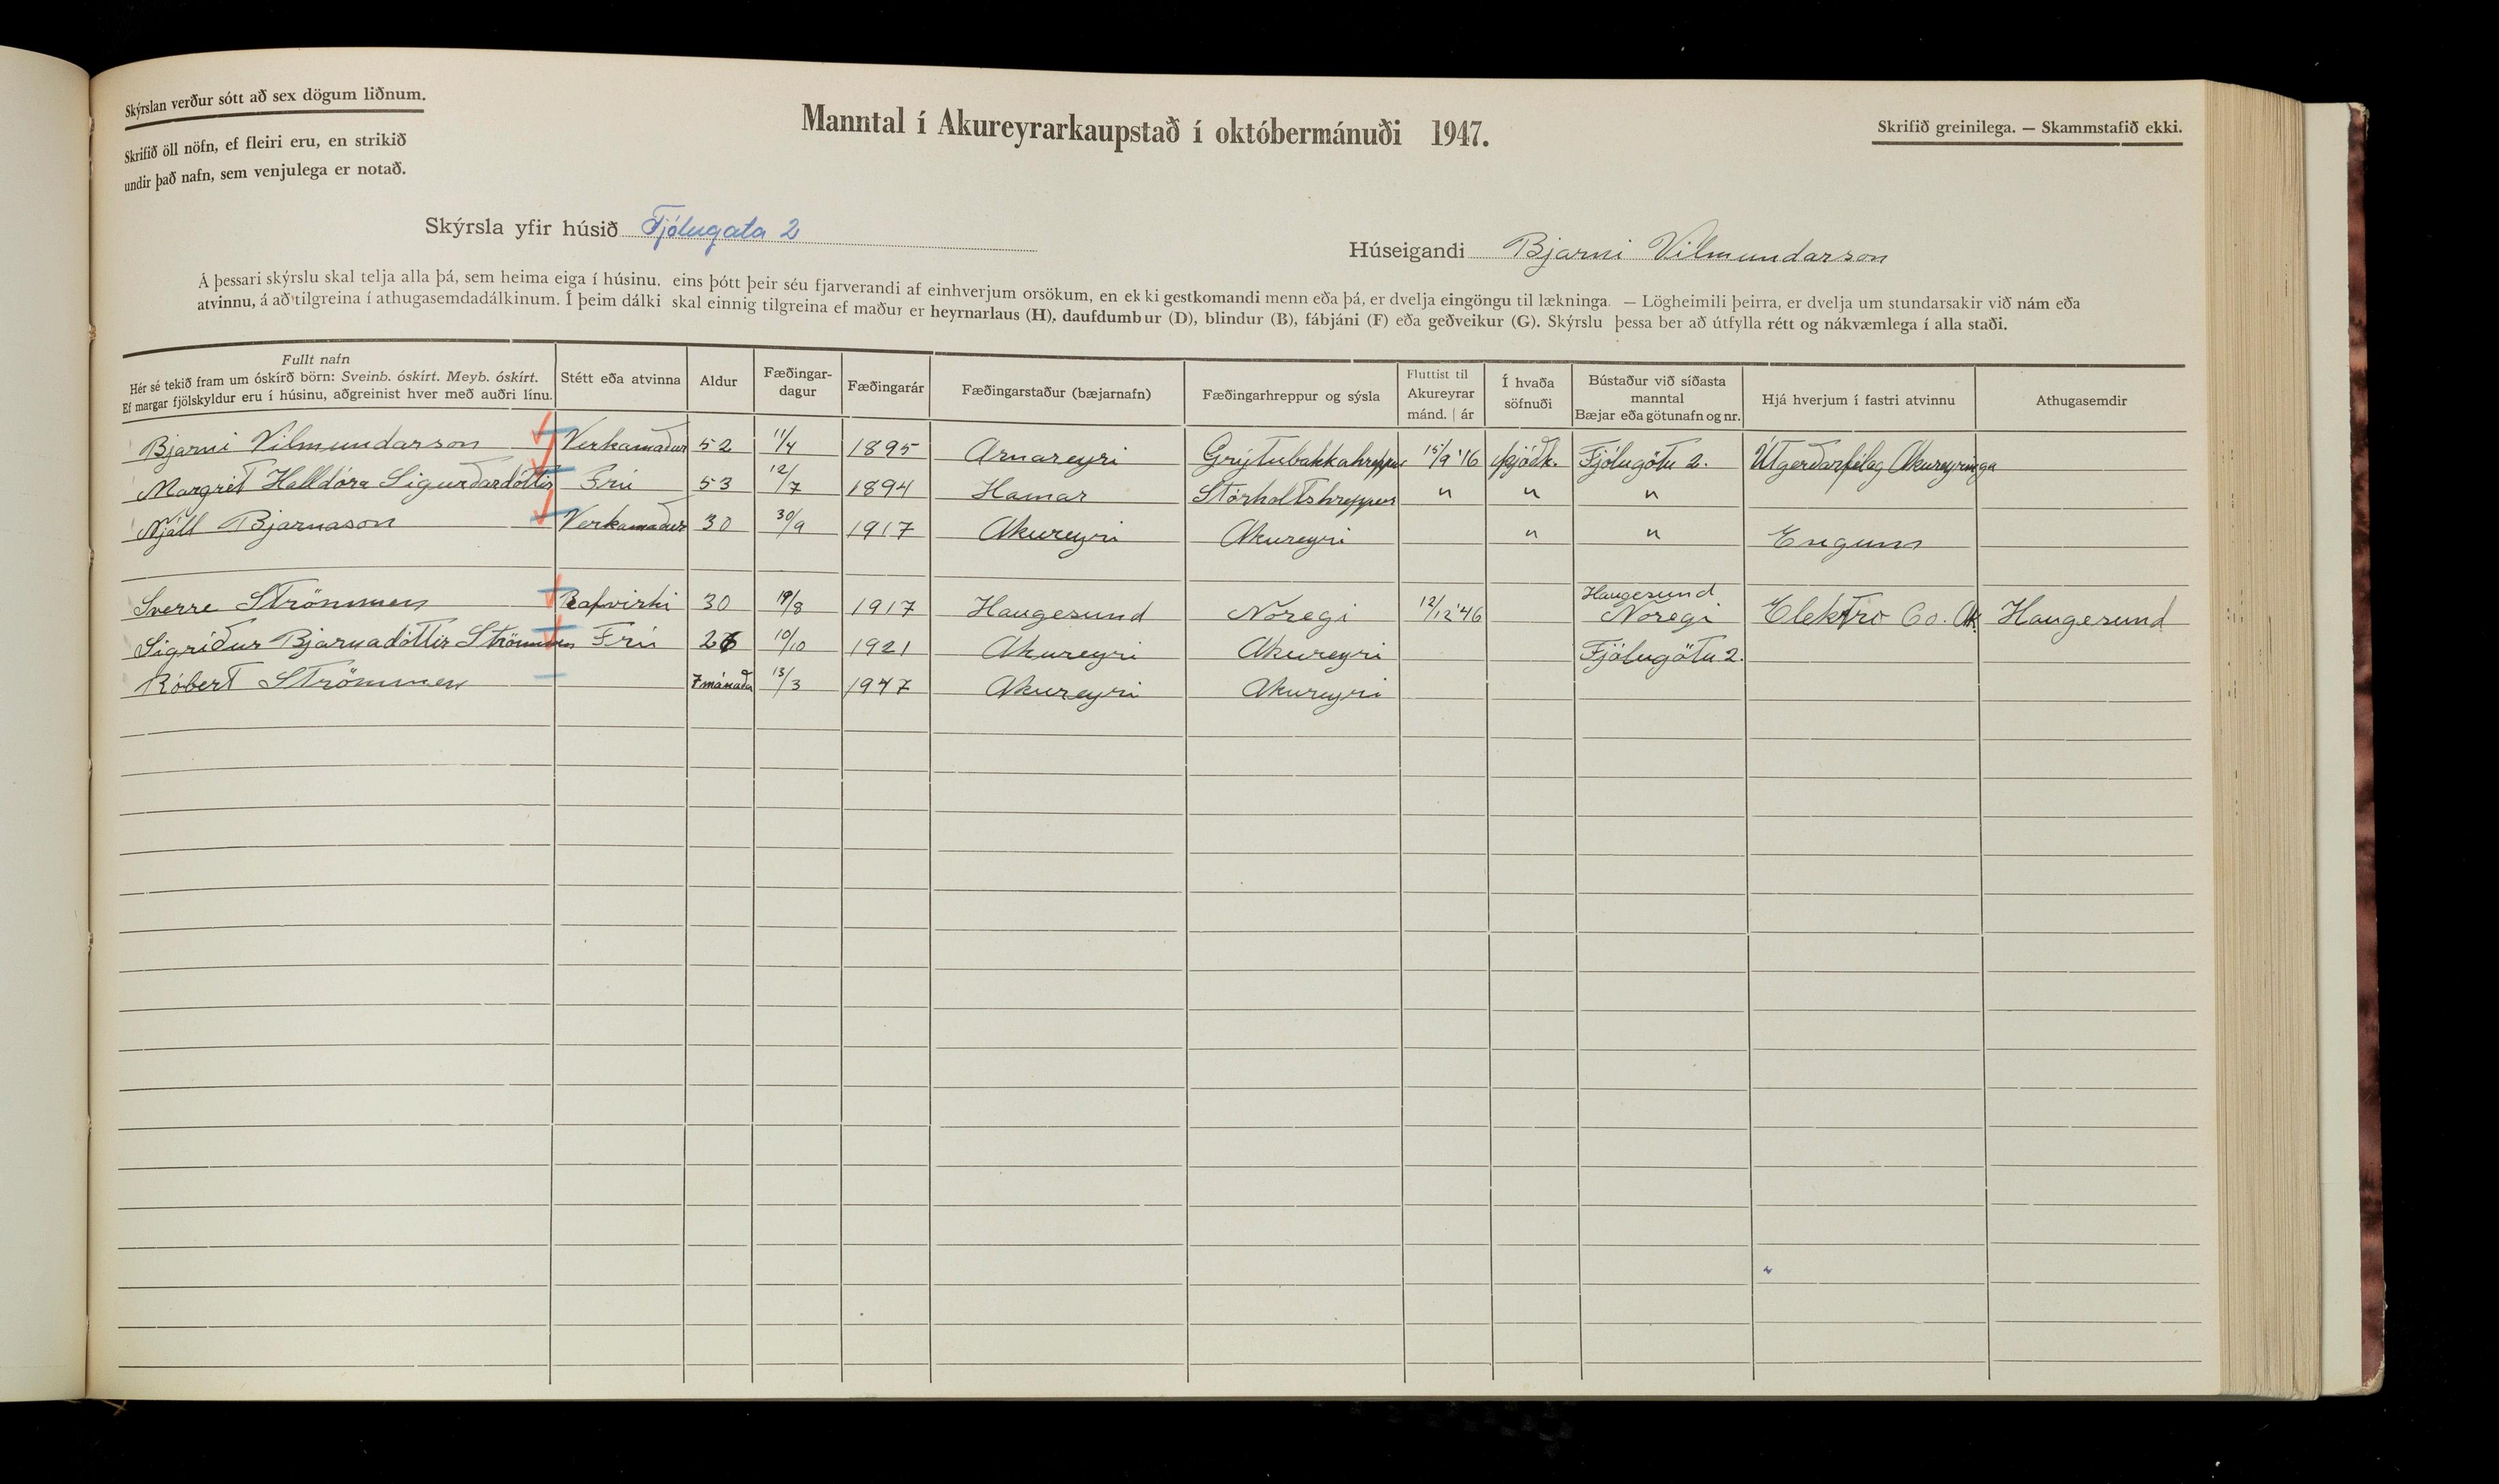 Skýrslan verður sótt að sex dögum liðnum.
Skrifið öll nöfn, ef fleiri eru, en strikið
undir það nafn, sem venjulega er notað.
Manntal í Akureyrarkaupstað í októbermánuði 1947.
Skrifið greinilega. — Skammstafið ekki.
Skýrsla yfir húsið Fjólugata 2
Húseigandi Bjarni Vilmundarson
Á þessari skýrslu skal telja alla þá, sem heima eiga í húsinu, eins þótt þeir séu fjarverandi af einhverjum orsökum, en ekki gestkomandi menn eða þá, er dvelja eingöngu til lækninga. — Lögheimili þeirra, er dvelja um stundarsakir við nám eða
atvinnu, á að tilgreina í athugasemdadálkinum. Í þeim dálki skal einnig tilgreina ef maður er heyrnarlaus (H), daufdumbur (D), blindur (B), fábjáni (F) eða geðveikur (G). Skýrslu þessa ber að útfylla rétt og nákvæmlega í alla staði.
Fullt nafn
Hér sé tekið fram um óskírð börn: Sveinb. óskírt. Meyb. óskírt.
Ef margar fjölskyldur eru í húsinu, aðgreinist hver með auðri línu.
Stétt eða atvinna
Aldur
Fæðingar-
dagur
Fæðingarár
Fæðingarstaður (bæjarnafn)
Fæðingarhreppur og sýsla
Fluttist til
Akureyrar
mánd. | ár
Í hvaða
söfnuði
Bústaður við síðasta
manntal
Bæjar eða götunafn og nr.
Hjá hverjum í fastri atvinnu
Athugasemdir
Bjarni Vilmundarson Verkamaður 52 11/4 1895 Arnareyri Grýtubakkahreppur 15/9 '16 þjóðk. Fjólugötu 2. Útgerðarfélag Akureyringa
Margrét Halldóra Sigurðardóttir Frú 53 12/7 1894 Hamar Stórholtshreppur " " "
Njáll Bjarnason Verkamaður 30 30/9 1917 Akureyri Akureyri " " Engum
Sverre Strömmen Rafvirki 30 19/8 1917 Haugesund Noregi 12/12 '46 Haugesund Noregi Elektro Co. Ak. Haugesund
Sigríður Bjarnadóttir Strömmen Frú 26 10/10 1921 Akureyri Akureyri Fjólugötu 2.
Róbert Strömmen 7 mánaða 13/3 1947 Akureyri Akureyri